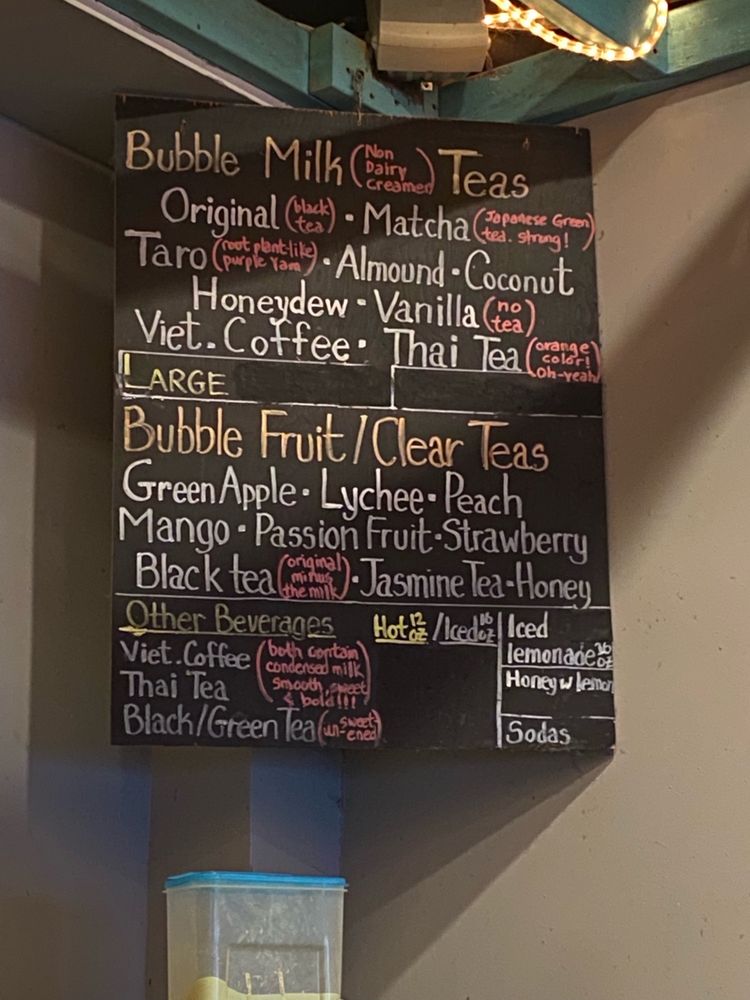 Bubble Milk (Non Dairy creamer) Teas
Original (black tea) · Matcha (Japanese Green tea. strong!)
Taro (root plant-like purple yam) · Almound · Coconut
Honeydew · Vanilla (no tea)
Viet. Coffee · Thai Tea (orange color! oh-yeah)
LARGE
Bubble Fruit/Clear Teas
Green Apple · Lychee · Peach
Mango · Passion Fruit · Strawberry
Black tea (original minus the milk) · Jasmine Tea · Honey
Other Beverages Hot 12 oz / Iced 16 oz
Viet. Coffee (both contain condensed milk smooth, sweet & bold!!!)
Thai Tea
Black/Green Tea (un-sweet-ened)
Iced
lemonade 16 oz
Honey w lemon
Sodas